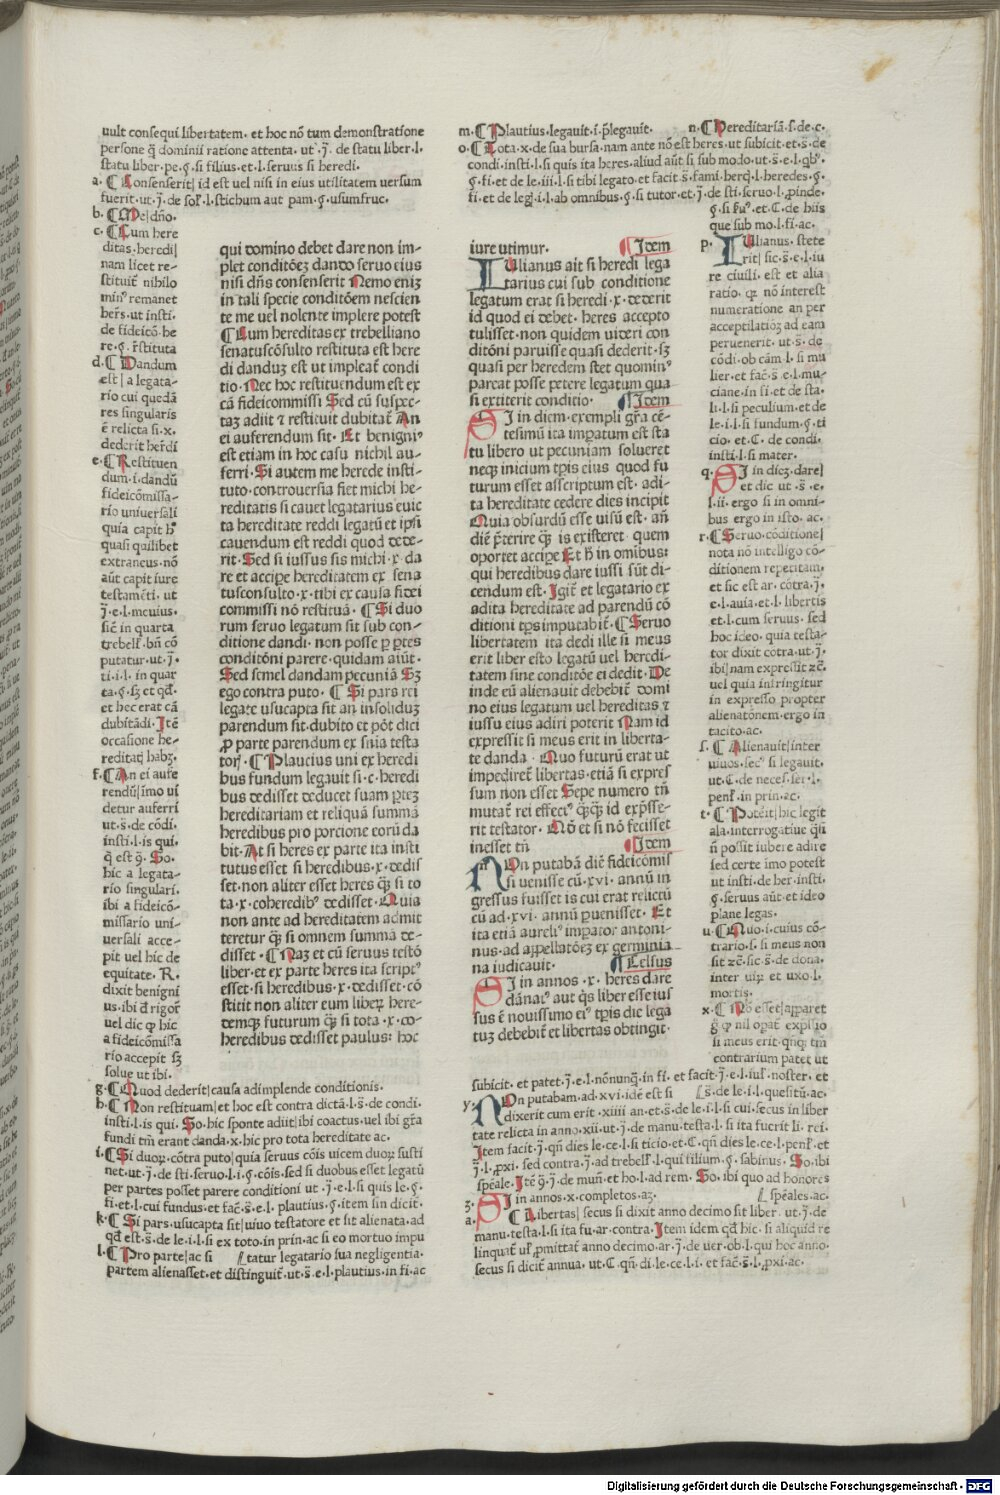 uult consequi libertatem. et hoc nō tum demonstratione
persone q̄ dominii ratione attenta. ut .j̄. de statu liber .l.
statu liber .pe. §. si filius. et .l. seruus si heredi.
a. ¶ Consenserit| id est uel nisi in eius utilitatem uersum
fuerit. ut .j̄. de sol̄. l. stichum aut pam. §. usumfruc.
b. ¶ Me| dn̄o.
c. ¶ Cum here
ditas. heredi|
nam licet re-
stituit nihilo
min⁹ remanet
her̄s. ut insti.
de fideicō. he
re. §. r̄stituta
d. ¶ Dandum
est| a legata-
rio cui quedā
res singularis
ē relicta si .x.
dederit her̄di
e. ¶ Restituen
dum .i. dandū
fideicōmissa-
rio uniuersali
quia capit h̄
quasi quilibet
extraneus. nō
aūt capit iure
testamēti. ut
.j̄. e. l. meuius.
sic̄ in quarta
trebell̄. bn̄ cō
putatur. ut .j̄.
ti. i. l. in quar
ta. §. sz et qd̄.
et hec erat cā
dubitādi. Itē
occasione he-
reditatꝭ habꝫ.
f. ¶ An ei aufe
rendū| imo ui
detur auferri
ut .s̄. de cōdi.
insti. l. is qui.
q̄ est 9̄. So.
hic a legata-
rio singulari.
ibi a fideicō-
missario uni-
uersali acce-
pit uel hic de
equitate. R.
dixit benigni
us. ibi d̄ rigor̄
uel dic ꝙ hic
a fideicōmissa
rio accepit sꝫ
solue ut ibi.
g. ¶ Quod dederit| causa adimplende conditionis.
h. ¶ Non restituam| et hoc est contra dictā .l. s̄. de condi.
insti. l. is qui. So. hic sponte adiit| ibi coactus. uel ibi gr̄a
fundi tm̄ erant danda .x. hic pro tota hereditate ac.
i. ¶ Si duoꝝ. cōtra puto| quia seruus cōis uicem duoꝝ susti
net. ut .j̄. de sti. seruo. l. i. §. cōis. sed si duobus esset legatū
per partes posset parere conditioni ut .j̄. e. l. si quis le. §.
fi. et .l. cui fundus. et fac̄ .s̄. e. l. plautius. §. item sin dicit.
k. ¶ Si pars. usucapta sit| uiuo testatore et sit alienata. ad
qd̄ est .s̄. de le. i. l. si ex toto. in prin. ac si eo mortuo impu
l. ¶ Pro parte| ac si   tatur legatario sua negligentia.
partem alienasset. et distinguit̄. ut .s̄. e. l. plautius. in fi. ac
qui domino debet dare non im-
plet conditōeꝫ dando seruo eius
nisi dn̄s consenserit Nemo eniꝫ
in tali specie conditōem nescien
te me uel nolente implere potest
¶ Cum hereditas ex trebelliano
senatuscōsulto restituta est here
di danduꝫ est ut impleat condi
tio. Nec hoc restituendum est ex
cā fideicommissi Sed cū suspec-
taꝫ adiit ⁊ restituit dubitat̄ An
ei auferendum sit. Et benigni⁹
est etiam in hoc casu nichil au-
ferri. Si autem me herede insti-
tuto. controuersia fiet michi he-
reditatis si cauet legatarius euic
ta hereditate reddi legatū et ipsi
cauendum est reddi quod dede-
rit. Sed si iussus sis michi .x. da
re et accipe hereditatem ex sena
tusconsulto .x. tibi ex causa fidei
commissi nō restituā. ¶ Si duo
rum seruo legatum sit sub con-
ditione dandi. non posse ꝑ ꝑtes
conditōni parere. quidam aiūt.
Sed semel dandam pecuniā Sꝫ
ego contra puto. ¶ Si pars rei
legate usucapta sit an̄ insoliduꝫ
parendum sit. dubito et pōt dici
ꝓ parte parendum ex sn̄ia testa
torꝭ. ¶ Plaucius uni ex heredi
bus fundum legauit si .c. heredi
bus dedisset deducet suam ꝑteꝫ
hereditariam et reliquā summā
heredibus pro porcione eorū da
bit. At si heres ex parte ita insti
tutus esset si heredibus .x. dedis
set. non aliter esset heres q̄ꝫ si to
ta .x. coheredib⁹ dedisset. Quia
non ante ad hereditatem admit
teretur q̄ꝫ si omnem summā de-
disset. ¶ Naꝫ et cū seruus testō
liber. et ex parte heres ita script⁹
esset. si heredibus .x. dedisset. cō
stitit non aliter eum liberꝫ here-
demqꝫ futurum q̄ꝫ si tota .x. co-
heredibus dedisset paulus: hoc
m. ¶ Plautius. legauit. i. p̄legauit.   n. ¶ Hereditariā .s. de .c.
o. ¶ Tota .x. de sua bursa. nam ante nō est heres. ut subicit. et .s̄. de
condi. insti. l. si quis ita heres. aliud aūt si sub modo. ut .s̄. e. l. qb⁹.
§. fi. et de le. iii. l. si tibi legato. et facit .s̄. fami. herc̄. l. heredes. §.
fi. et de leḡ. i. l. ab omnibus. §. si tutor. et .j̄. de sti. seruo. l. ꝓinde.
§. si fu⁹. et .C. de hiis
que sub mo. l. fi. ac.
iure utimur.   ¶ Idem
IUlianus ait si heredi lega
tarius cui sub conditione
legatum erat si heredi .x. dederit
id quod ei debet. heres accepto
tulisset. non quidem uideri con
ditōni paruisse quasi dederit. sꝫ
quasi per heredem stet quomin⁹
pareat posse petere legatum qua
si extiterit conditio.   ¶ Idem
SI in diem. exempli gr̄a cē-
tesimū ita imꝑatum est sta
tu libero ut pecuniam solueret
neqꝫ inicium tꝑis eius quod fu
turum esset asscriptum est. adi-
ta hereditate cedere dies incipit
Quia obsurdū esse uisū est. an̄
diē p̄terire q̄ꝫ is existeret quem
oportet accipe Et h̄ in omibus:
qui heredibus dare iussi sūt di-
cendum est. Igit̄ et legatario ex
adita hereditate ad parendū cō
ditioni tꝑs imputabit̄. ¶ Seruo
libertatem ita dedi ille si meus
erit liber esto legatū uel heredi-
tatem sine conditōe ei dedit. De
inde eū alienauit debebit̄ domi
no eius legatum uel hereditas ⁊
iussu eius adiri poterit Nam id
expressit si meus erit in liberta-
te danda. Quo futurū erat ut
impediret̄ libertas. etiā si expres
sum non esset Sepe numero tn̄
mutat̄ rei effect⁹ q̄ꝙ id exp̄sse-
rit testator. Nō et si nō fecisset
inesset tn̄   ¶ Idem
NOn putabā diē fideicōmis
si uenisse cū .xvi. annū in
gressus fuisset is cui erat relictū
cū ad .xvi. annū ꝑuenisset. Et
ita etiā aureli⁹ imꝑator antoni-
nus. ad appellatōeꝫ ex germinia
na iudicauit.   ¶ Celsus
SI in annos .x. heres dare
dānat⁹ aut q̄s liber esse ius
sus ē nouissimo ei⁹ tꝑis die lega
tuꝫ debebit̄ et libertas obtingit.
p. IUlianus. stete
rit| sic .s̄. e. l. iu
re ciuili. est et alia
ratio. qꝛ nō interest
numeratione an per
acceptilatioꝫ ad eam
peruenerit. ut .s̄. de
cōdi. ob cām. l. si mu
lier. et fac̄ .s̄. e. l. mu-
ciane. in fi. et de sta.
li. l. si peculium. et de
le. i. l. si fundum. §. ti
cio. et .C. de condi.
insti. l. si mater.
q. SI in dieꝫ. dare|
et dic ut .s̄. e.
l. ii. ergo si in omni-
bus ergo in isto. ac.
r. ¶ Seruo. cōditione|
nota nō intelligo cō-
ditionem repetitam.
et sic est ar. cōtra .j̄.
e. l. auia. et .l. libertis
et .l. cum seruus. sed
hoc ideo. quia testa-
tor dixit cōtra. ut .j̄.
ibi| nam expressit ꝛc̄.
uel quia infringitur
in expresso propter
alienatōnem. ergo in
tacito. ac.
s. ¶ Alienauit| inter
uiuos. sec⁹ si legauit.
ut .C. de neces. ser. l.
penl̄. in prin. ac.
t. ¶ Poterit| hic legit̄
ala. interrogatiue q̄si
n̄ possit iubere adire
sed certe imo potest
ut insti. de her. insti.
§. seruus aūt. et ideo
plane legas.
u. ¶ Quo .i. cuius cō-
trario. l. si meus non
sit ꝛc̄. sic .s̄. de dona.
inter uiꝝ et uxo. l.
mortis.
x. ¶ Nō esset| apparet
g̊ ꝙ nil oꝑat̄ exp̄ssio
si meus erit. qn̄qꝫ tm̄
contrarium patet ut
subicit. et patet .j̄. e. l. nōnunqꝫ. in fi. et facit .j̄. e. l. iul̄. noster. et
y. NOn putabam. ad .xvi. idē est si   s̄. de le. i. l. quesitū. ac.
dixerit cum erit .xiiii. an. et .s̄. de le. i. l. si cui. secus in liber
tate relicta in anno. xii. ut .j̄. de manu. testa. l. si ita fuerit li. rei.
Item facit .j̄. qn̄ dies le. ce. l. si ticio. et .C. qn̄ dies le. ce. l. penl̄. et
.j̄. l. ꝓxi. sed contra .j̄. ad trebell̄. l. qui filium. §. sabinus. So. ibi
sp̄eale. Itē 9̄ .j̄. de mun̄. et ho. l. ad rem. So. ibi quo ad honores
z. SI in annos .x. completos. aꝫ.   sp̄eales. ac.
a. ¶ Libertas| secus si dixit anno decimo sit liber. ut .j̄. de
manu. testa. l. si ita fu. ar. contra. Item idem qd̄ hic. si aliquid re
linquat̄ ul̄ ꝓmittat̄ anno decimo. ar .j̄. de uer. ob. l. qui hoc anno.
secus si dicit̄ annua. ut .C. qn̄ di. le. ce. l. i. et fac̄ .s̄. l. ꝓxi. ac.
Digitalisierung gefördert durch die Deutsche Forschungsgemeinschaft - DFG